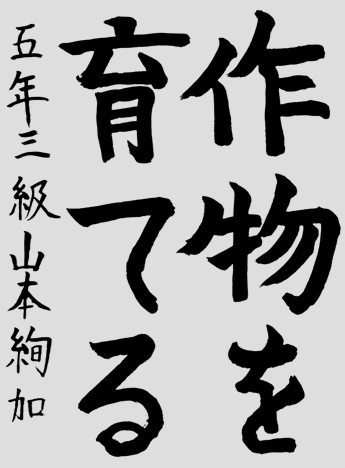 作物を
育てる
五年三級山本絢加